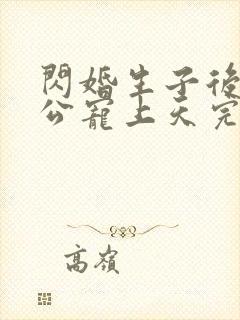 閃婚生子後
公寵上天完
高嶺